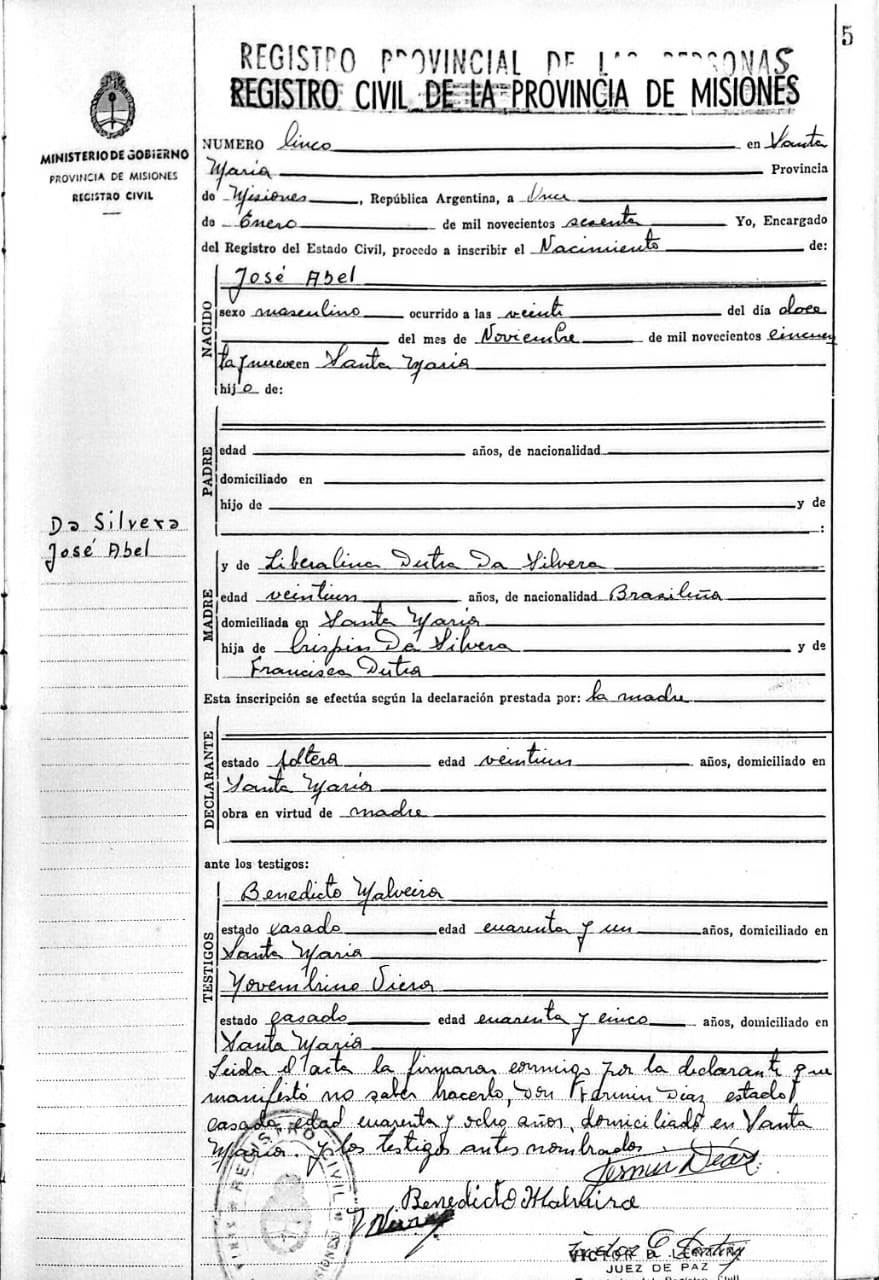 5
REGISTRO PROVINCIAL DE LAS PERSONAS
REGISTRO CIVIL DE LA PROVINCIA DE MISIONES
MINISTERIO DE GOBIERNO
PROVINCIA DE MISIONES
REGISTRO CIVIL
NUMERO Cinco en Santa
María Provincia
de Misiones, República Argentina, a
de Enero de mil novecientos sesenta Yo, Encargado
del Registro del Estado Civil, procedo a inscribir el Nacimiento de:
NACIDO
José Abel
sexo masculino ocurrido a las veinte del día doce
del mes de Noviembre de mil novecientos cincuen
ta y nueve en Santa María
hijo de:
PADRE
edad años, de nacionalidad
domiciliado en
hijo de y de
:
Da Silvera
José Abel
MADRE
y de Liberalina Dutra Da Silvera
edad veintiun años, de nacionalidad Brasileña
domiciliada en Santa María
hija de Crispin Da Silvera y de
Francisca Dutra
Esta inscripción se efectúa según la declaración prestada por: la madre
DECLARANTE
estado soltera edad veintiun años, domiciliado en
Santa María
obra en virtud de madre
ante los testigos:
TESTIGOS
Benedicto Malveira
estado casado edad cuarenta y un años, domiciliado en
Santa María
Novembrino Viera
estado casado edad cuarenta y cinco años, domiciliado en
Santa María
Leida el acta la firmaron conmigo por la declarante que
manifestó no saber hacerlo, Don Fermin Diaz estado
casado, edad cuarenta y ocho años, domiciliado en Santa
María. y los testigos antes nombrados.
Fermin Díaz
Benedicto Malveira
REGISTRO CIVIL
VICTOR
JUEZ DE PAZ